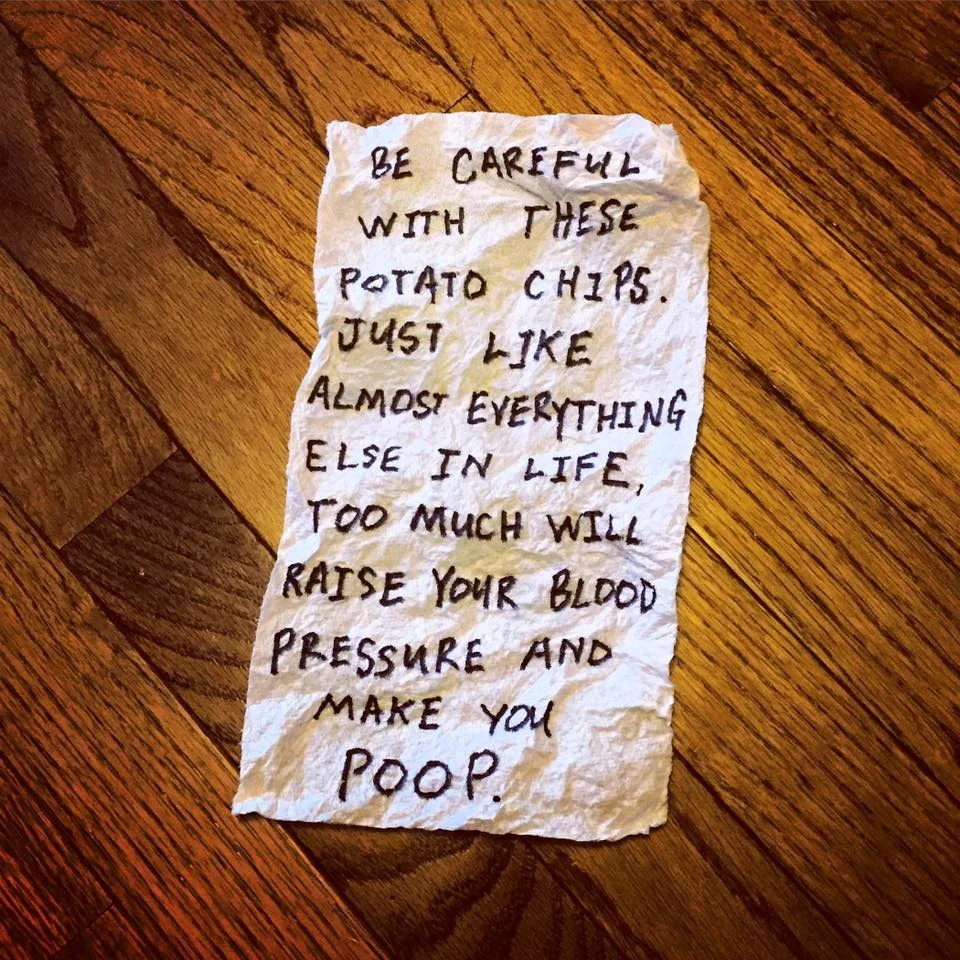 BE CAREFUL
WITH THESE
POTATO CHIPS.
JUST LIKE
ALMOST EVERYTHING
ELSE IN LIFE,
TOO MUCH WILL
RAISE YOUR BLOOD
PRESSURE AND
MAKE YOU
POOP.